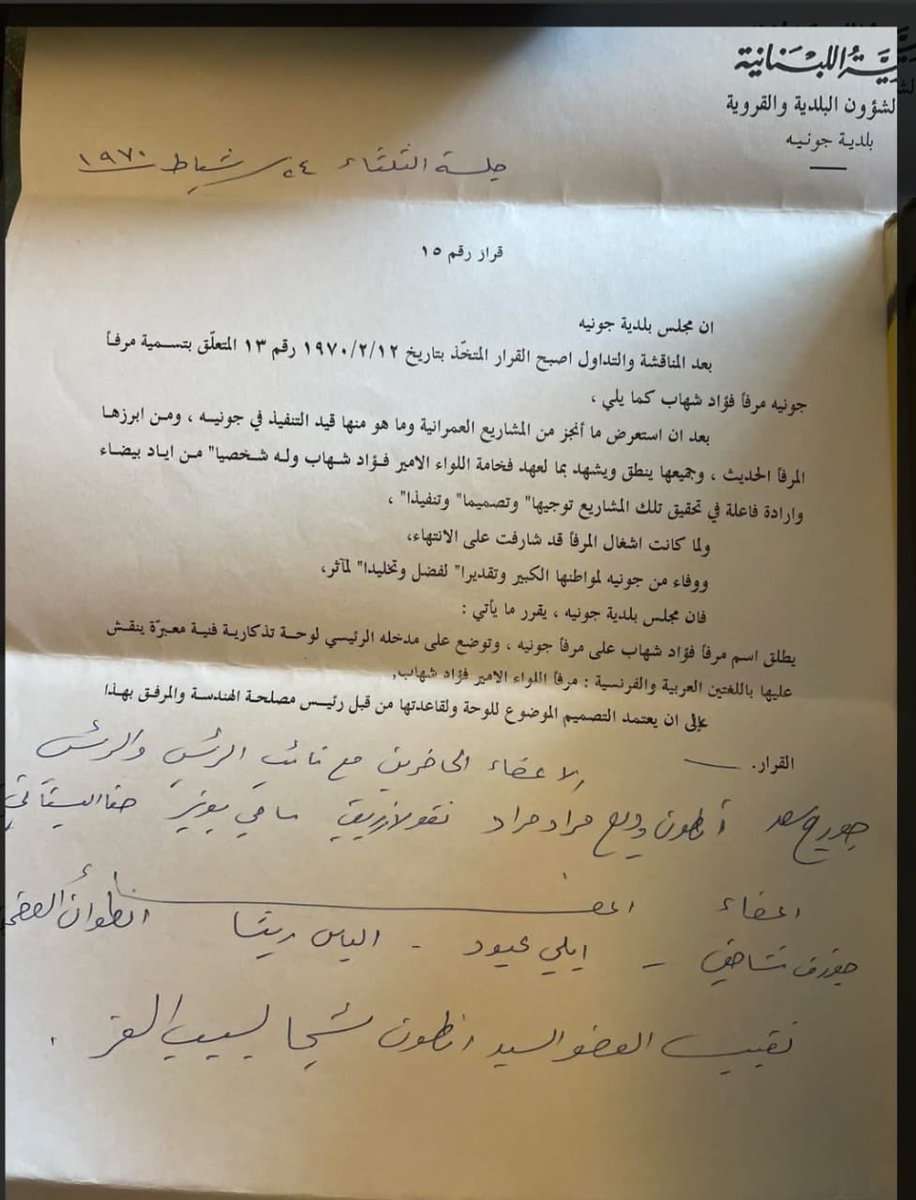 ـيَّةُ اللبْنَانية
لشؤون البلدية والقروية
بلدية جونيه
جلسة الثلثاء ٢٤ شباط ١٩٧٠
قرار رقم ١٥
ان مجلس بلدية جونيه
بعد المناقشة والتداول اصبح القرار المتخّذ بتاريخ ١٩٧٠/٢/١٢ رقم ١٣ المتعلّق بتسمية مرفأ
جونيه مرفأ فؤاد شهاب كما يلي ،
بعد ان استعرض ما أنجز من المشاريع العمرانية وما هو منها قيد التنفيذ في جونيه ، ومن ابرزها
المرفأ الحديث ، وجميعها ينطق ويشهد بما لعهد فخامة اللواء الامير فؤاد شهاب وله شخصيا" من اياد بيضاء
وارادة فاعلة في تحقيق تلك المشاريع توجيها" وتصميما" وتنفيذا" ،
ولما كانت اشغال المرفأ قد شارفت على الانتهاء،
ووفاء من جونيه لمواطنها الكبير وتقديرا" لفضل وتخليدا" لمآثر،
فان مجلس بلدية جونيه ، يقرر ما يأتي :
يطلق اسم مرفأ فؤاد شهاب على مرفأ جونيه ، وتوضع على مدخله الرئيسي لوحة تذكارية فنية معبرّة ينقش
عليها باللغتين العربية والفرنسية : مرفأ اللواء الامير فؤاد شهاب.
على ان يعتمد التصميم الموضوع للوحة ولقاعدتها من قبل رئيس مصلحة الهندسة والمرفق بهذا
القرار.
الاعضاء الحاضرين مع نائب الرئيس والرئيس
جورج سعد أنطون وديع مراد مراد نقولا زريق سامي بويز حنا البستاني
اعضاء
جوزف شاحق - ايلي عبود - الياس ريشا انطوان
تغيب العضو السيد انطون شيحا بسبب السفر .